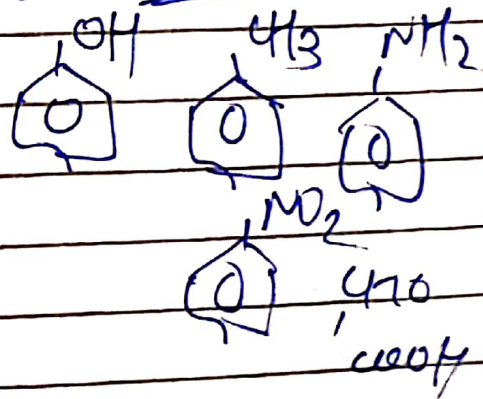 OH CH3 NH2
NO2
CHO
COOH